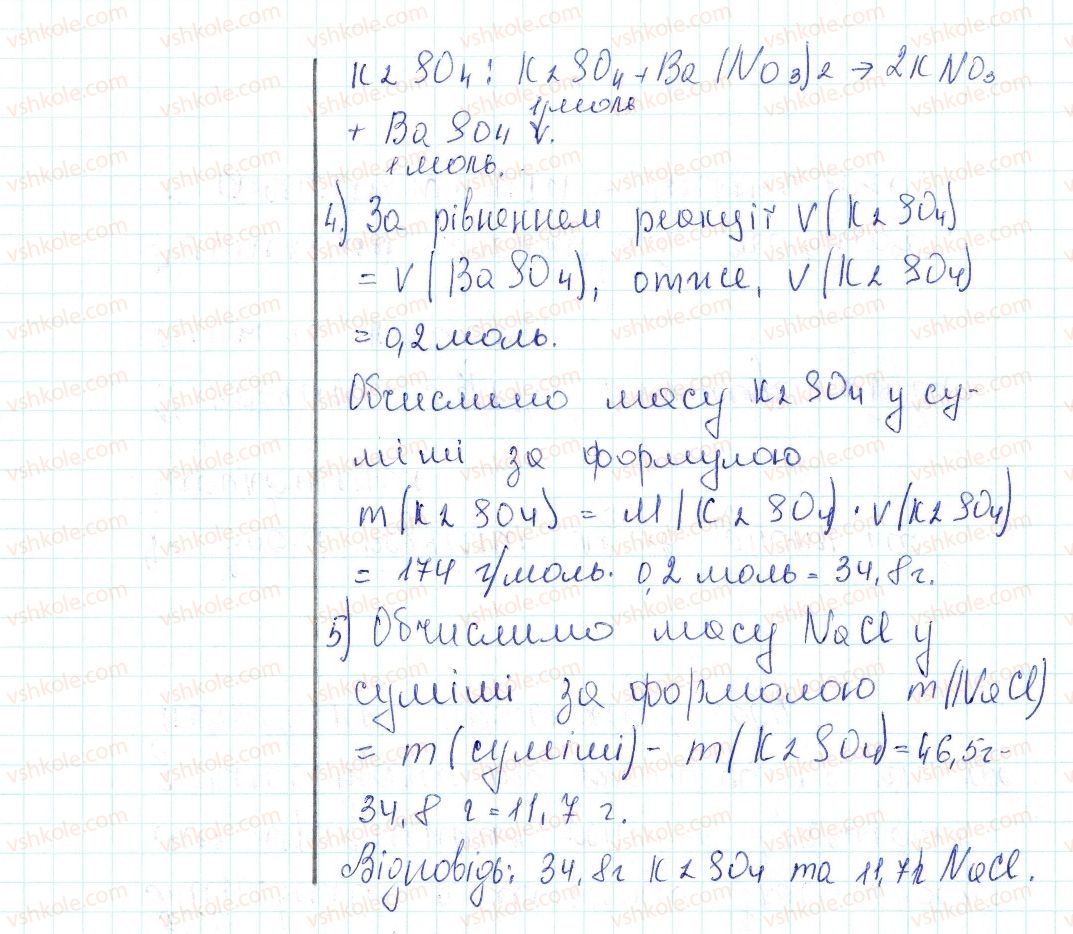 K2SO4: K2SO4 + Ba(NO3)2 → 2KNO3
1 моль
+ BaSO4 ↓.
1 моль.
4.) За рівненнем реакції ν(K2SO4)
= ν(BaSO4), отже, ν(K2SO4)
= 0,2 моль.
Обчислимо масу K2SO4 у су-
міші за формулою
m(K2SO4) = M(K2SO4) · ν(K2SO4)
= 174 г/моль · 0,2 моль = 34,8 г.
5) Обчислимо масу NaCl у
суміші за формолою m(NaCl)
= m(суміші) - m(K2SO4) = 46,5г -
34,8 г = 11,7 г.
Відповідь: 34,8г K2SO4 та 11,7г NaCl.